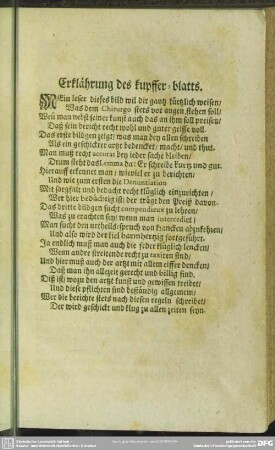 Erklährung des kupffer-blatts.
MEin leser dieses bild wil dir gantz kürtzlich weisen/
Was dem Chirurgo stets vor augen stehen soll/
Weñ man nebst seiner kunst auch das an ihm soll preisen/
Daß sein bericht recht wohl und guter griffe voll.
Das erste bildgen zeigt/ was man bey allen schreiben
Als ein geschickter artzt bedencket/ macht/ und thut.
Man muß recht accurat bey jeder sache bleiben/
Drum steht das Lemma da: Er schreibe kurtz und gut.
Hierauff erkennet man/ wieviel er zu berichten/
Und wie zum ersten die Denuntiation
Mit sorgfalt und bedacht recht klüglich einzurichten/
Wer hier bedächtig ist/ der trägt den Preiß davon.
Das dritte bildgen sucht compendieux zu lehren/
Was zu erachten sey/ wenn man intercedirt/
Man sucht den urtheils-spruch von krancken abzukehren/
Und also wird der kiel barmhertzig fortgeführt.
Ja endlich muß man auch die feder klüglich lencken/
Wenn andre streitende recht zu taxiren sind/
Und hier muß auch der artzt mit allem eiffer dencken/
Daß man ihn allezeit gerecht und billig find.
Diß ist/ wozu den artzt kunst und gewissen treibet/
Und diese pflichten sind beständig allgemein/
Wer die berichte stets nach diesen regeln schreibet/
Der wird geschickt und klug zu allen zeiten seyn.
DFG